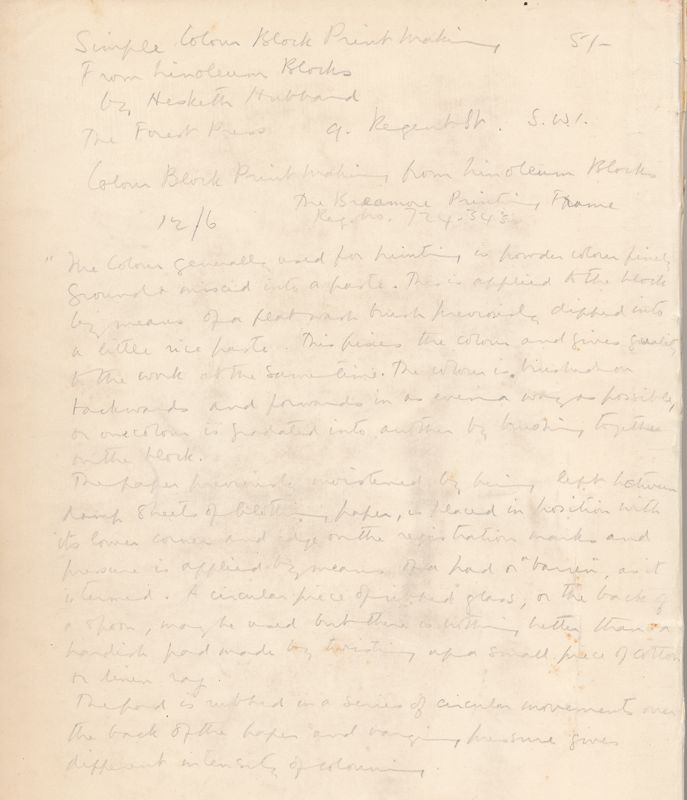 Simple Colour Block Print Making 5/-
From Linoleum Blocks
by Hesketh Hubbard
The Forest Press 9. Regent St. S.W.1.
Colour Block Print Making from Linoleum Blocks
The Breamore Printing Frame
12/6 Reg. No. 724,343
"The Colour generally used for printing is powder colour finely
ground & mixed into a paste. This is applied to the block
by means of a flat wash brush previously dipped into
a little rice paste. This fixes the colour and gives quality
to the work at the same time. The colour is brushed on
backwards and forwards in as even a way as possible,
or one colour is gradated into another by brushing together
on the block.
The paper previously moistened by being kept between
damp sheets of blotting paper, is placed in position with
its lower corner and edge on the registration marks and
pressure is applied by means of a pad or "barren", as it
is termed. A circular piece of ribbed glass, or the back of
a spoon, may be used but there is nothing better than a
handish pad made by twisting up a small piece of cotton
or linen rag.
The pad is rubbed in a series of circular movements over
the back of the paper and varying pressure gives
different intensity of colouring.